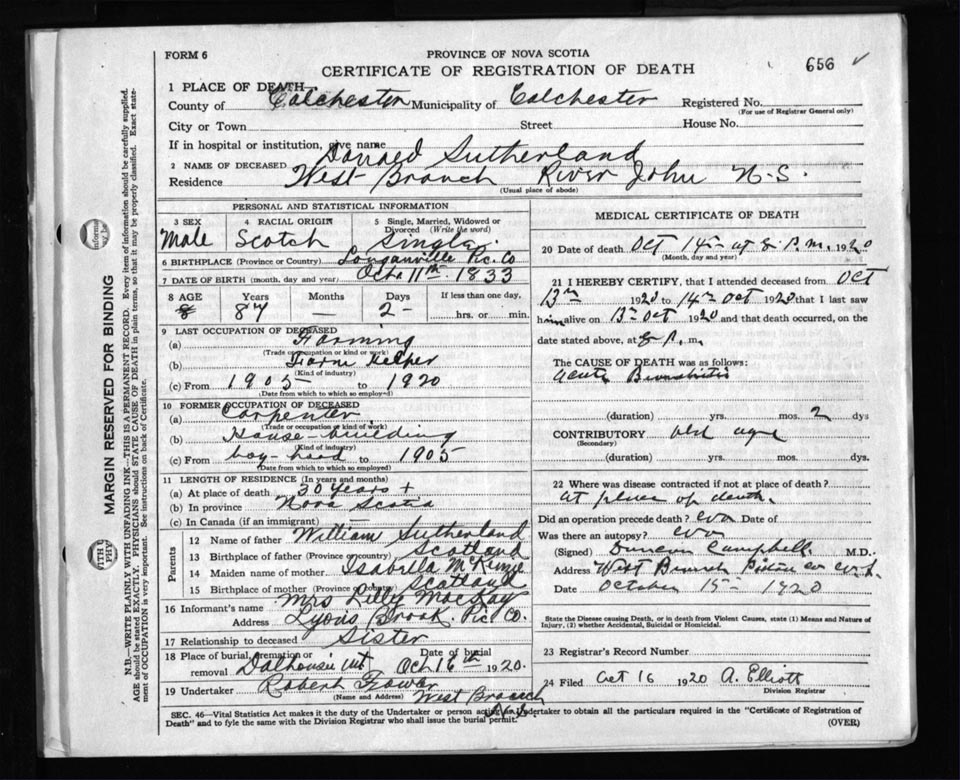 FORM 6
PROVINCE OF NOVA SCOTIA
CERTIFICATE OF REGISTRATION OF DEATH
656
1 PLACE OF DEATH
County of Colchester Municipality of Colchester Registered No.
(For use of Registrar General only)
City or Town Street House No.
If in hospital or institution, give name
2 NAME OF DECEASED Donald Sutherland
Residence West Branch River John N.S.
(Usual place of abode)
PERSONAL AND STATISTICAL INFORMATION
3 SEX
Male
4 RACIAL ORIGIN
Scotch
5 Single, Married, Widowed or
Divorced (Write the word)
Single.
6 BIRTHPLACE (Province or Country) Pic. Co
7 DATE OF BIRTH (month, day and year) Oct 11th 1833
8 AGE Years Months Days If less than one day,
8 87 — 2 hrs. or min.
9 LAST OCCUPATION OF DECEASED
(a) Farming
(Trade or occupation or kind of work)
(b) Farm
(Kind of industry)
(c) From 1905 to 1920
(Date from which to which so employed)
10 FORMER OCCUPATION OF DECEASED
(a) Carpenter
(Trade or occupation of kind of work)
(b) House-building
(Kind of industry)
(c) From boy-hood to 1905
(Date from which to which employed)
11 LENGTH OF RESIDENCE (In years and months)
(a) At place of death 30 years +
(b) In province Nova Scotia
(c) In Canada (if an immigrant)
Parents
12 Name of father William Sutherland
13 Birthplace of father (Province or country) Scotland
14 Maiden name of mother Isabella McKenzie
15 Birthplace of mother (Province or Country) Scotland
16 Informant's name Mrs MacKay
Address Lyons Brook. Pic. Co.
17 Relationship to deceased Sister
18 Place of burial, cremation or removal Dalhousie Mt Date of burial Oct 16th 1920.
19 Undertaker Robert West Branch
(Name and Address) N.S.
MEDICAL CERTIFICATE OF DEATH
20 Date of death Oct 14th at 8 P.m, 1920
(Month, day and year)
21 I HEREBY CERTIFY, that I attended deceased from Oct
13th 1920 to 14th Oct 1920 that I last saw
him alive on 13th Oct 1920 and that death occurred, on the
date stated above, at 8 P. m.
The CAUSE OF DEATH was as follows:
Acute Bronchitis
(duration) yrs. mos. 2 dys
CONTRIBUTORY old age
(Secondary)
(duration) yrs. mos. dys.
22 Where was disease contracted if not at place of death?
At place of death.
Did an operation precede death? No Date of
Was there an autopsy? No
(Signed) Duncan Campbell M.D.
Address West Branch Pictou Co N.S.
Date October 15th 1920
State the Disease Causing Death, or in death from Violent Causes, state (1) Means and Nature of
Injury, (2) whether Accidental, Suicidal or Homicidal.
23 Registrar's Record Number
24 Filed Oct 16 1920 A. Elliott
Division Registrar
SEC. 46—Vital Statistics Act makes it the duty of the Undertaker or person acting as Undertaker to obtain all the particulars required in the "Certificate of Registration of
Death" and to fyle the same with the Division Registrar who shall issue the burial permit.
(OVER)
MARGIN RESERVED FOR BINDING
N.B.—WRITE PLAINLY WITH UNFADING INK—THIS IS A PERMANENT RECORD. Every item of information should be carefully supplied.
AGE should be stated EXACTLY. PHYSICIANS should STATE CAUSE OF DEATH in plain terms, so that it may be properly classified. Exact state-
ment of OCCUPATION is very important. See instructions on back of Certificate.